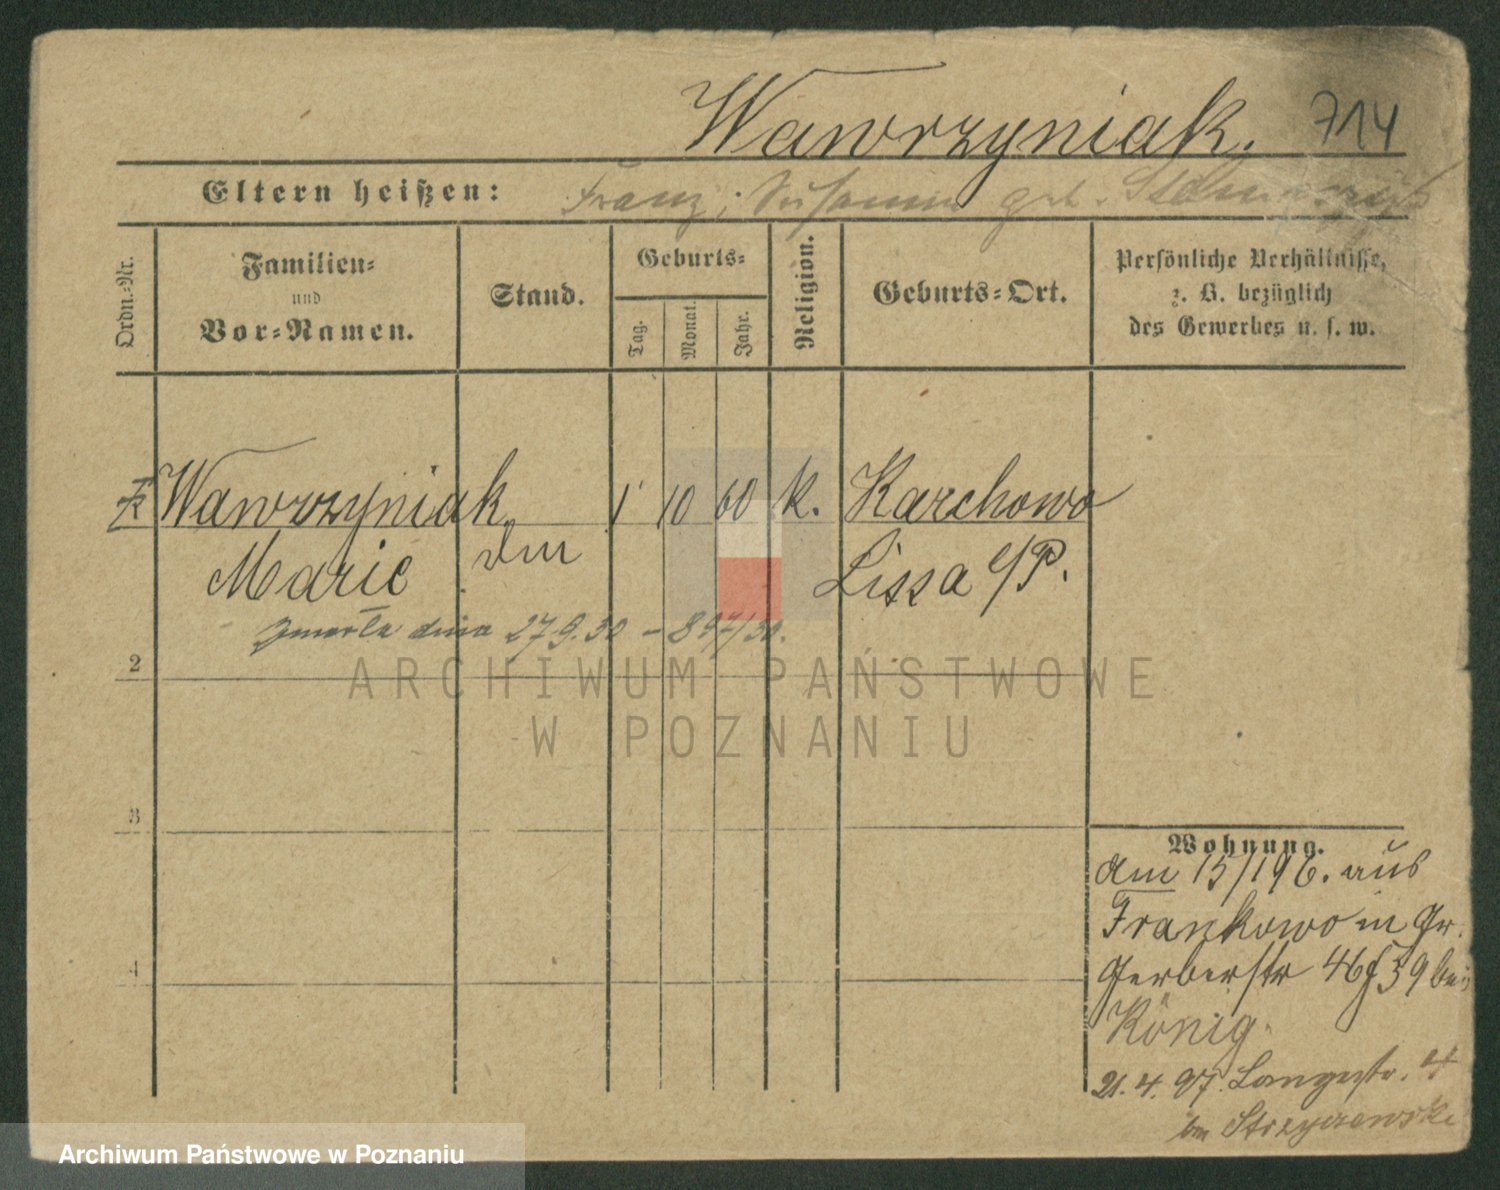 Wawrzyniak. 714
Eltern heißen: Franz; Susanna geb.
Ordn.-Nr.
Familien-
und
Vor-Namen.
Stand.
Geburts-
Tag.
Monat.
Jahr.
Religion.
Geburts-Ort.
Persönliche Verhältnisse,
z. B. bezüglich
des Gewerbes u. s. w.
Wawrzyniak 1 10 60 k. Karchowo
Marie Lissa i/P.
Zmarła dnia 27.9.30 - 897/30.
2
3
4
Wohnung.
am 15/1 96. aus
Frankowo in Gr.
Gerberstr 46 39 bei
König
21. 4. 97. Langestr. 4
bei Strzyzewski
ARCHIWUM PAŃSTWOWE
W POZNANIU
Archiwum Państwowe w Poznaniu